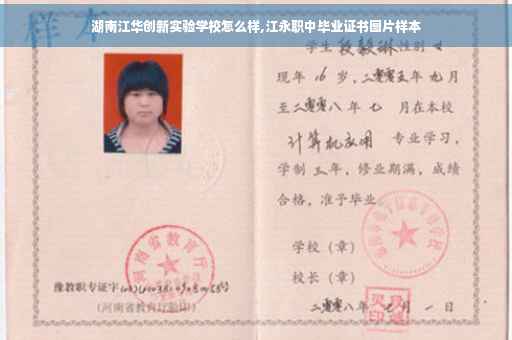 湖南江华创新实验学校怎么样,江永职中毕业证书图片样本
样本
学生段毅琳性别女
现年16岁,二零零五年九月
至二零零八年七月在本校
计算机应用 专业学习,
学制三年,修业期满,成绩
合格,准予毕业
学校(章)
校长(章)
二零零八年 月 日
河南省教育厅
豫教职专证字
(河南省教育厅验印)